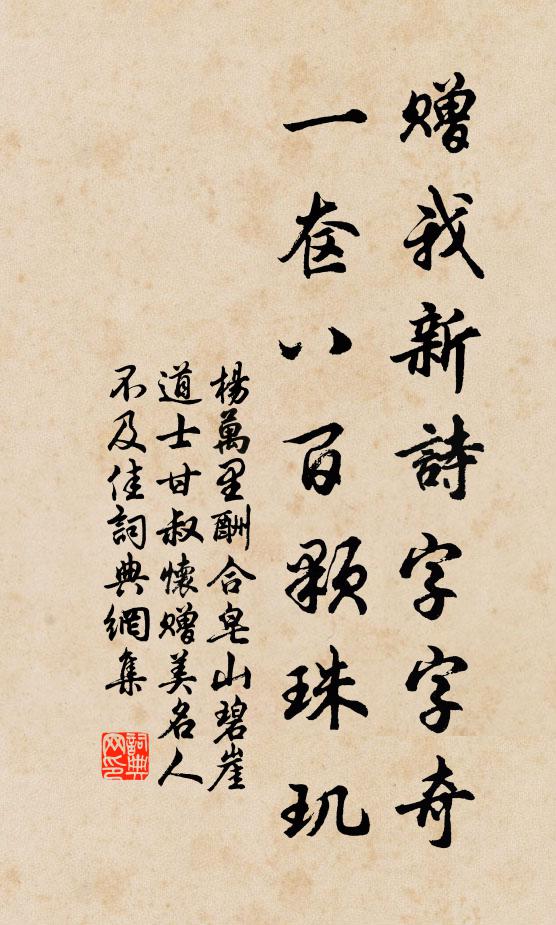 赠我新詩字字奇
一奁八百顆珠玑
楊萬里酬合皂山碧崖
道士甘叔懷赠美名人
不及佳詞典網集
詞典网印